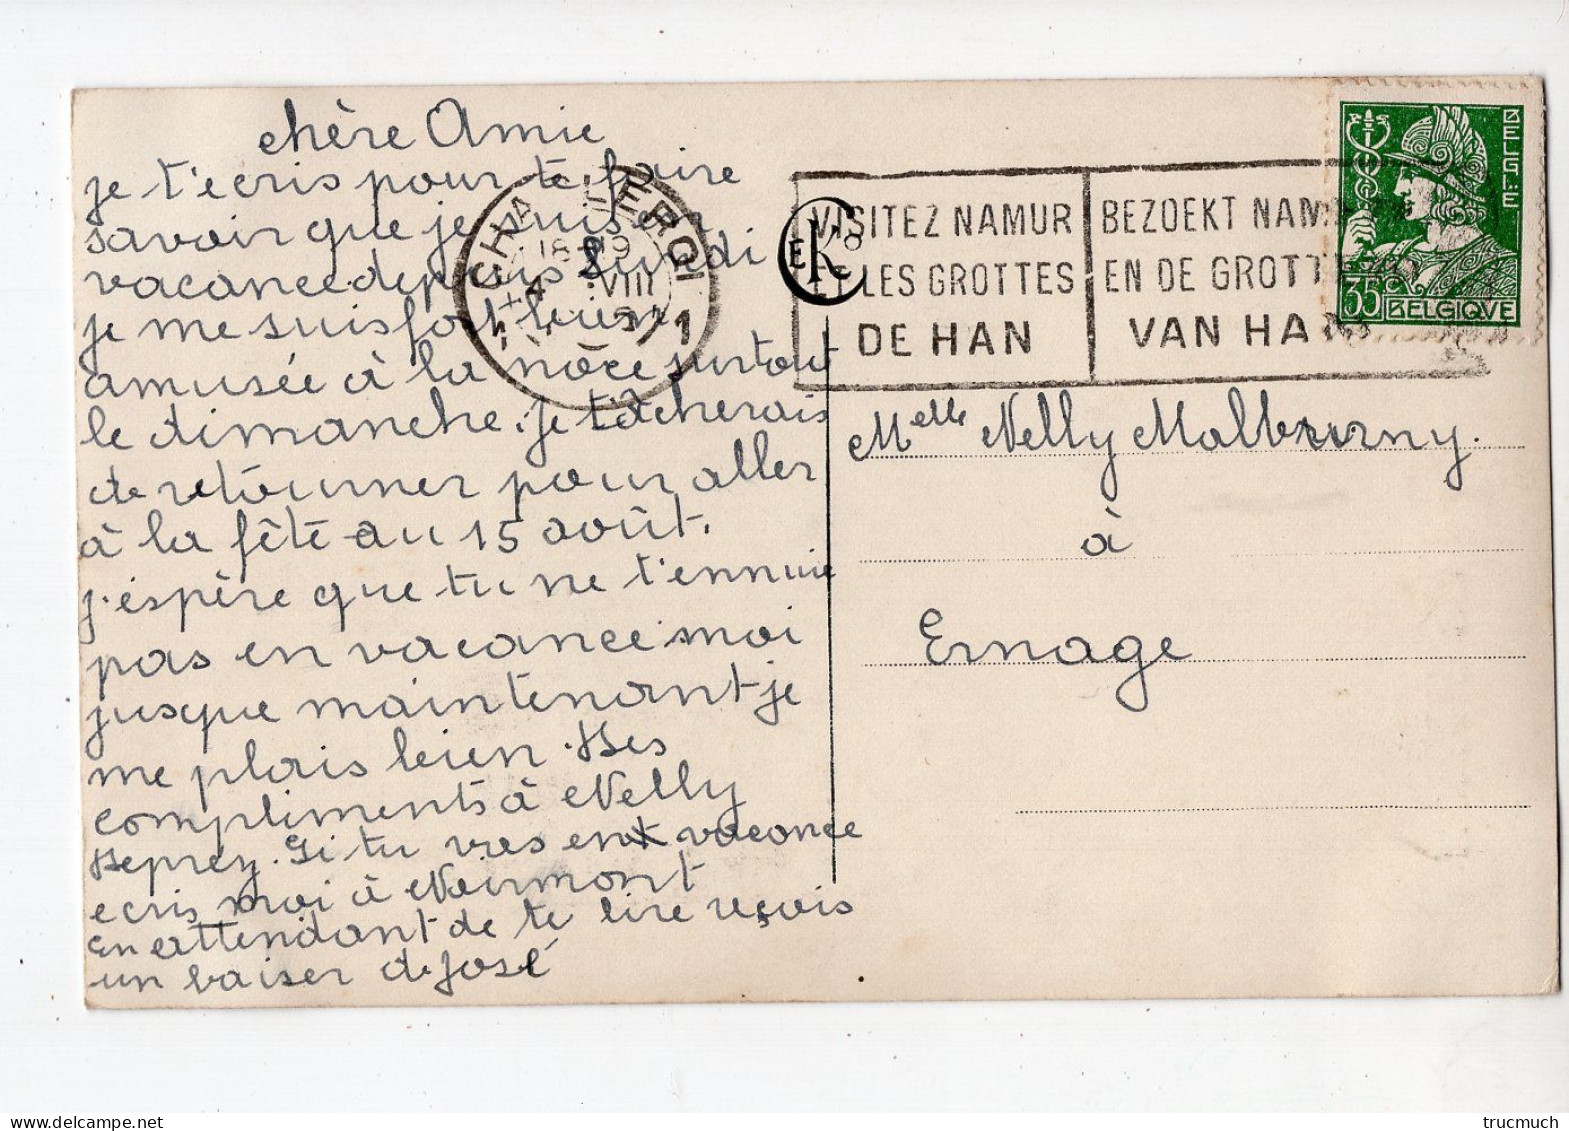 chère Amie
je t'ecris pour te faire
savoir que je suis en
vacance depuis Lundi
je me suis fort bien
amusée à la noce surtout
le dimanche. je tâcherais
de retourner pour aller
à la fête au 15 août.
j'espère que tu ne t'ennuie
pas en vacance moi
jusque maintenant je
me plais bien. Des
compliments à Nelly
Deprey. Si tu vas en vacance
ecris moi à Noirmont
En attendant de te lire reçois
un baiser de José
CHARLEROI
18-19
4 VIII
1
VISITEZ NAMUR
ET LES GROTTES
DE HAN
BEZOEKT NAM
EN DE GROTTE
VAN HA
EK Co
BELGIE
35 BELGIQVE
Melle Nelly Malburny.
à
Ernage
trucmuch